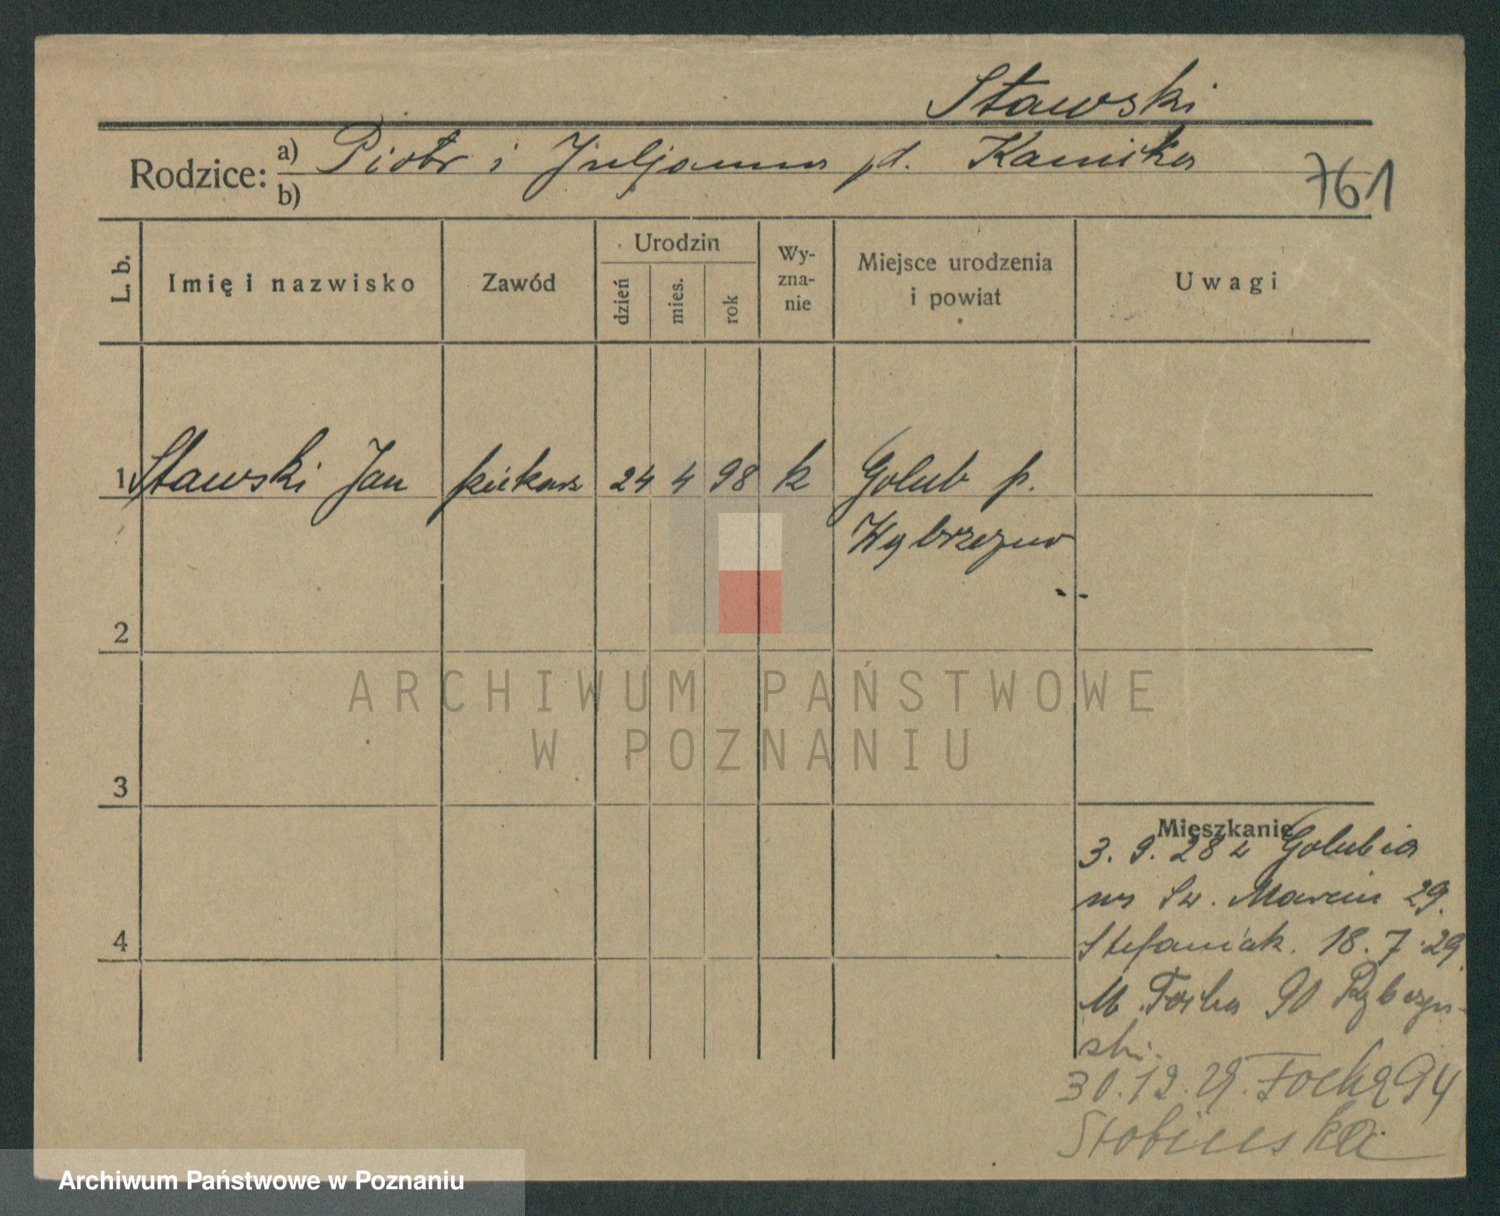 Stawski
Rodzice: a) Piotr i Juljanna pd. Kamska
b)
761
L. b. Imię i nazwisko Zawód Urodzin dzień mies. rok Wy-zna-nie Miejsce urodzenia i powiat Uwagi
1 Stawski Jan piekarz 24 4 98 k Golub p.
Wąbrzezno
2
3
4
Mieszkanie
3. 9. 28 z Golubia
na Św. Marcin 29.
Stefaniak. 18. 7. 29.
M. Focha 90 Rybczyń-
ski.
30.12.29. Focha 94
Stobienska
ARCHIWUM PAŃSTWOWE
W POZNANIU
Archiwum Państwowe w Poznaniu